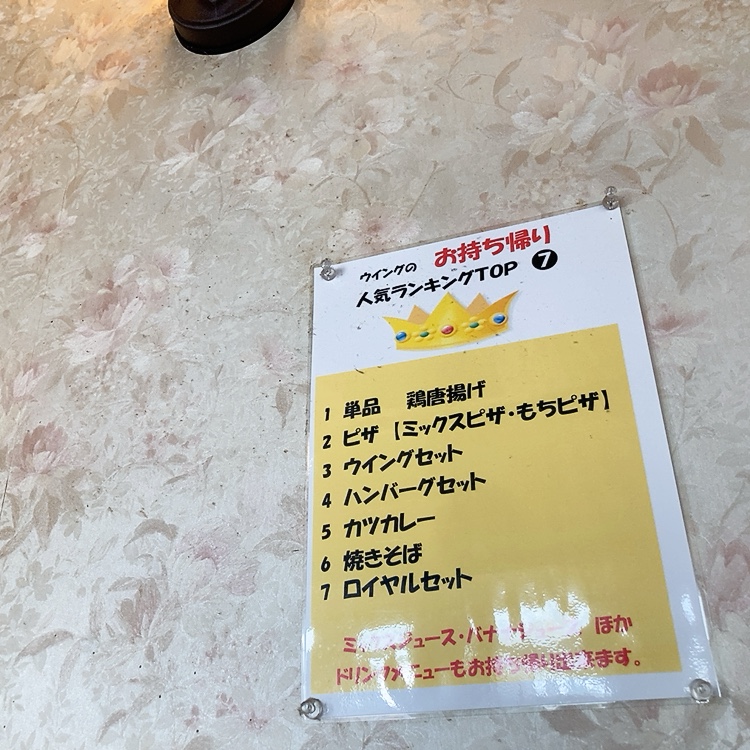 ウイングの お持ち帰り
人気ランキングTOP ❼
1 単品 鶏唐揚げ
2 ピザ 【ミックスピザ・もちピザ】
3 ウイングセット
4 ハンバーグセット
5 カツカレー
6 焼きそば
7 ロイヤルセット
ミックスジュース・バナナジュース ほか
ドリンクメニューもお持ち帰り出来ます。